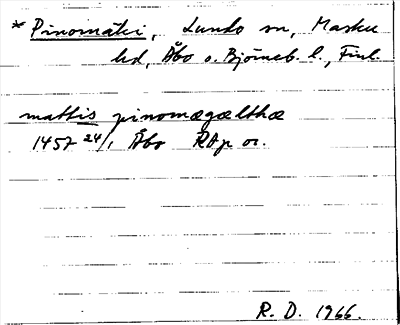 * Pinomäki, Lundo sn, Masku
hd, Åbo o. Björneb. l., Finl.
mattis pinomægælthæ
1457 24/1 Åbo RAp or.
R. D. 1966.